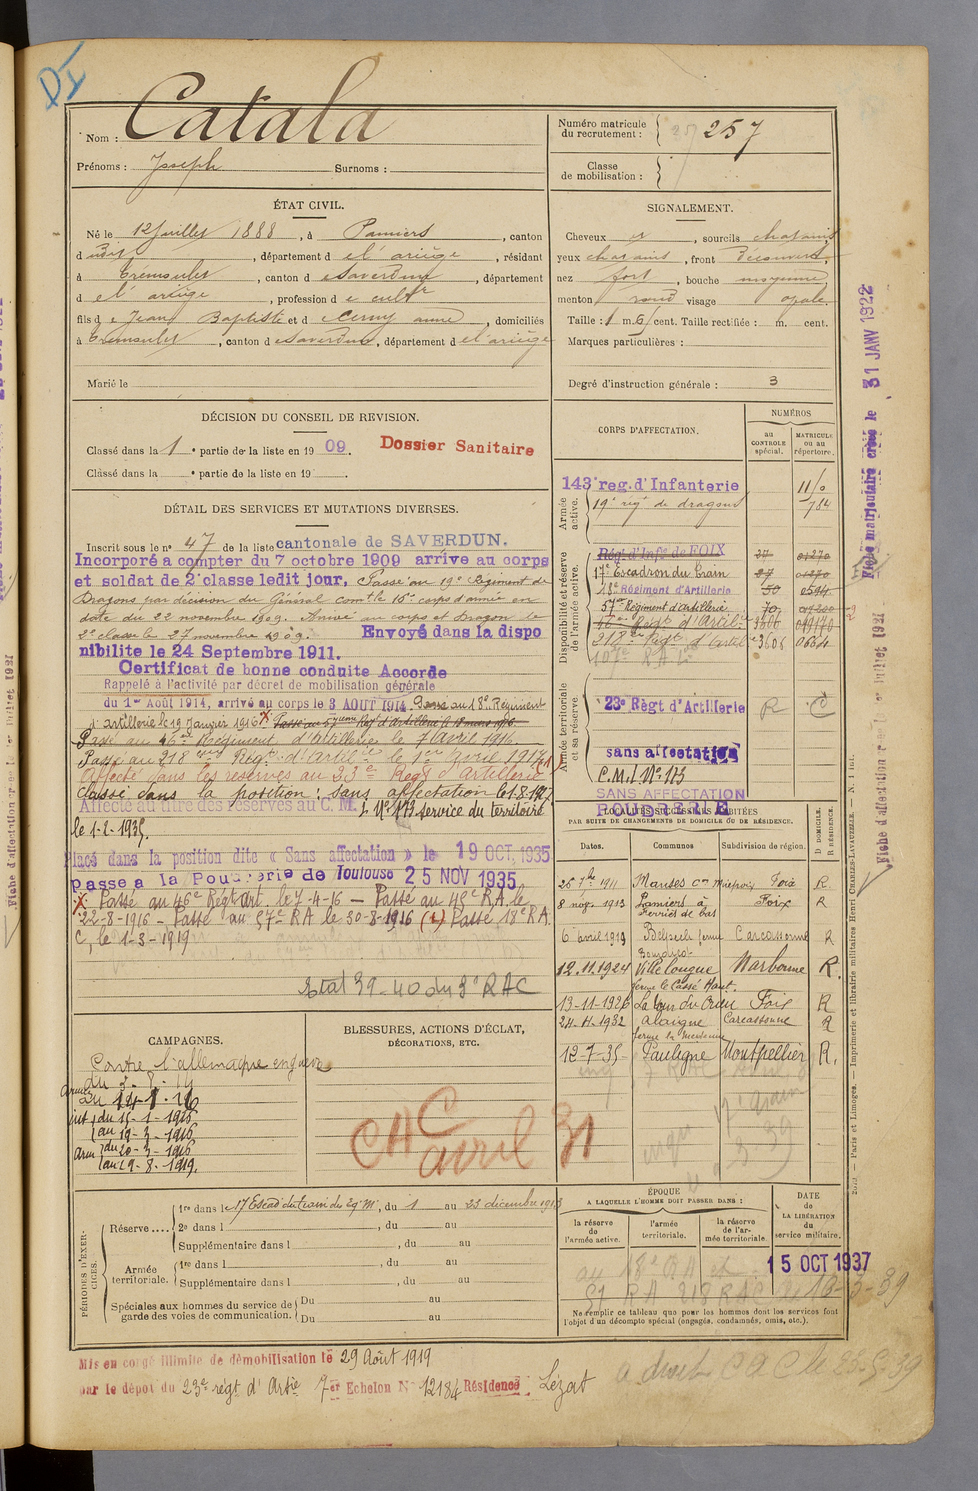 DI
Nom : Catala
Prénoms : Joseph Surnoms :
Numéro matricule du recrutement : 257
Classe de mobilisation :
ÉTAT CIVIL.
Né le 12 juillet 1888, à Pamiers, canton
d dit, département d e l'ariège, résidant
à Tremoulet, canton d e Saverdun, département
d e l'ariège, profession d e cultr
fils d e Jean Baptiste et d e Cerny anne, domiciliés
à Tremoulet, canton d e Saverdun, département d e l'ariège
Marié le
SIGNALEMENT.
Cheveux et, sourcils chatains
yeux chatains, front découvert
nez fort, bouche moyenne
menton rond visage ovale
Taille : 1 m. 6 cent. Taille rectifiée : m. cent.
Marques particulières :
Degré d'instruction générale : 3
DÉCISION DU CONSEIL DE REVISION.
Classé dans la 1e partie de la liste en 1909.
Dossier Sanitaire
Classé dans la e partie de la liste en 19 .
DÉTAIL DES SERVICES ET MUTATIONS DIVERSES.
Inscrit sous le n° 47 de la liste cantonale de SAVERDUN.
Incorporé a compter du 7 octobre 1909 arrive au corps
et soldat de 2e classe ledit jour, Passé au 19e Régiment de
Dragons par décision du Général comt le 16e corps d'armée en
date du 22 novembre 1909. Arrivé au corps et Dragon de
2e classe le 27 novembre 1909. Envoyé dans la dispo
nibilite le 24 Septembre 1911.
Certificat de bonne conduite Accorde
Rappelé à l'activité par décret de mobilisation générale
du 1er Août 1914, arrivé au corps le 3 AOUT 1914 Passé au 18e Régiment
d'artillerie le 19 Janvier 1916. Passé au 57eme Regt d'Artillerie le 18 mars 1916.
Passé au 46e Régiment d'Artillerie le 7 Avril 1916.
Passé au 218eme Regt d'Artillerie le 1er Avril 1917 (1)
Affecté dans les réserves au 23e Regt d'Artillerie
Classé dans la position : sans affectation le 1.8.1927
Affecté au titre des réserves au C. M. I. N° 173 service du territoire
le 1-2-1935.
Placé dans la position dite « Sans affectation » le 19 OCT. 1935
Passe a la Poudrerie de Toulouse 25 NOV 1935
X Passé au 46e Régt art. le 7-4-16 — Passé au 45e R.A. le
22-8-1916 — Passé au 57e R A le 30-8-1916 (1) Passé 18e R.A.
C, le 1-3-1919
Etat 39-40 du 3e RAC
CORPS D'AFFECTATION.
NUMÉROS
au CONTROLE spécial.
MATRICULE ou au répertoire.
Armée active.
143e reg. d'Infanterie 11/0
19e regt de dragons 784
Disponibilité et réserve de l'armée active.
Régt d'Infie de FOIX
17e Escadron du Train
18e Régiment d'Artillerie 50 0594
57e Régiment d'Artillerie
46e Regt d'Artille 3606
218e Regt d'Artil 3606 0684
107e R A Lde
Armée territoriale et sa réserve
23e Règt d'Artillerie R
sans affectation
C.M.I. N° 173
SANS AFFECTATION
POUDRERIE
LOCALITÉS SUCCESSIVES HABITÉES
PAR SUITE DE CHANGEMENTS DE DOMICILE OU DE RÉSIDENCE.
Dates. Communes Subdivision de région. D DOMICILE. R RÉSIDENCE.
26 7bre 1911 Manses con Mirepoix Foix R.
8 nov. 1913 Lamiers à Verniel de bas Foix R
6 avril 1919 Belpech ferme Carcassonne R
12.11.1924 Villelongue Narbonne R.
ferme le Cassé Haut.
13-11-1926 La Tour du Crieu Foix R
24-4-1932 Alaigne Carcassonne R
12-7-35 Pauligne Montpellier R.
CAMPAGNES.
Contre l'allemagne en guerre
du 3-8-14
au 14-1-16
int du 15-1-1916
au 19-3-1916
arm du 20-3-1916
au 29-8-1919.
BLESSURES, ACTIONS D'ÉCLAT, DÉCORATIONS, ETC.
C H C
avril 31
PÉRIODES D'EXERCICES.
Réserve....
1re dans l e 17 Escad du train des Eq. M., du 1 au 23 décembre 1913
2e dans l , du au
Supplémentaire dans l , du au
Armée territoriale.
1re dans l , du au
Supplémentaire dans l , du au
Spéciales aux hommes du service de garde des voies de communication.
Du au
Du au
ÉPOQUE
A LAQUELLE L'HOMME DOIT PASSER DANS :
la réserve de l'armée active.
l'armée territoriale.
la réserve de l'armée territoriale.
DATE de LA LIBÉRATION du service militaire.
15 OCT 1937
au 18e RA et
57 RA 218 RAC le 13-3-39
Ne remplir ce tableau que pour les hommes dont les services font
l'objet d'un décompte spécial (engagés, condamnés, omis, etc.).
Mis en congé illimité de démobilisation le 29 Août 1919
par le dépôt du 23e régt d'Artie 7er Echelon N° 12184 Résidence Lézat
a droit C A C le 23-5-39
Fiche matriculaire créée le 31 JANV 1922
Paris et Limoges. — Imprimerie et librairie militaires Henri CHARLES-LAVAUZELLE.